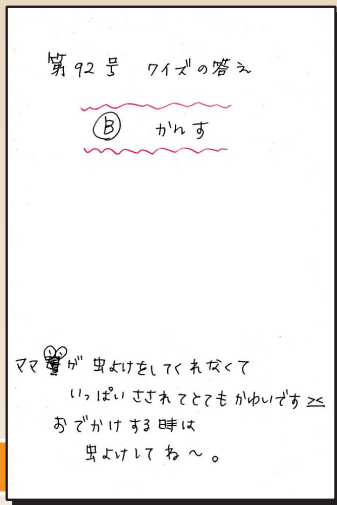 第92号 クイズの答え
Ⓑ かんす
ママが 虫よけをしてくれなくて
いっぱいさされてとてもかゆいです ><
おでかけする時は
虫よけしてね〜。